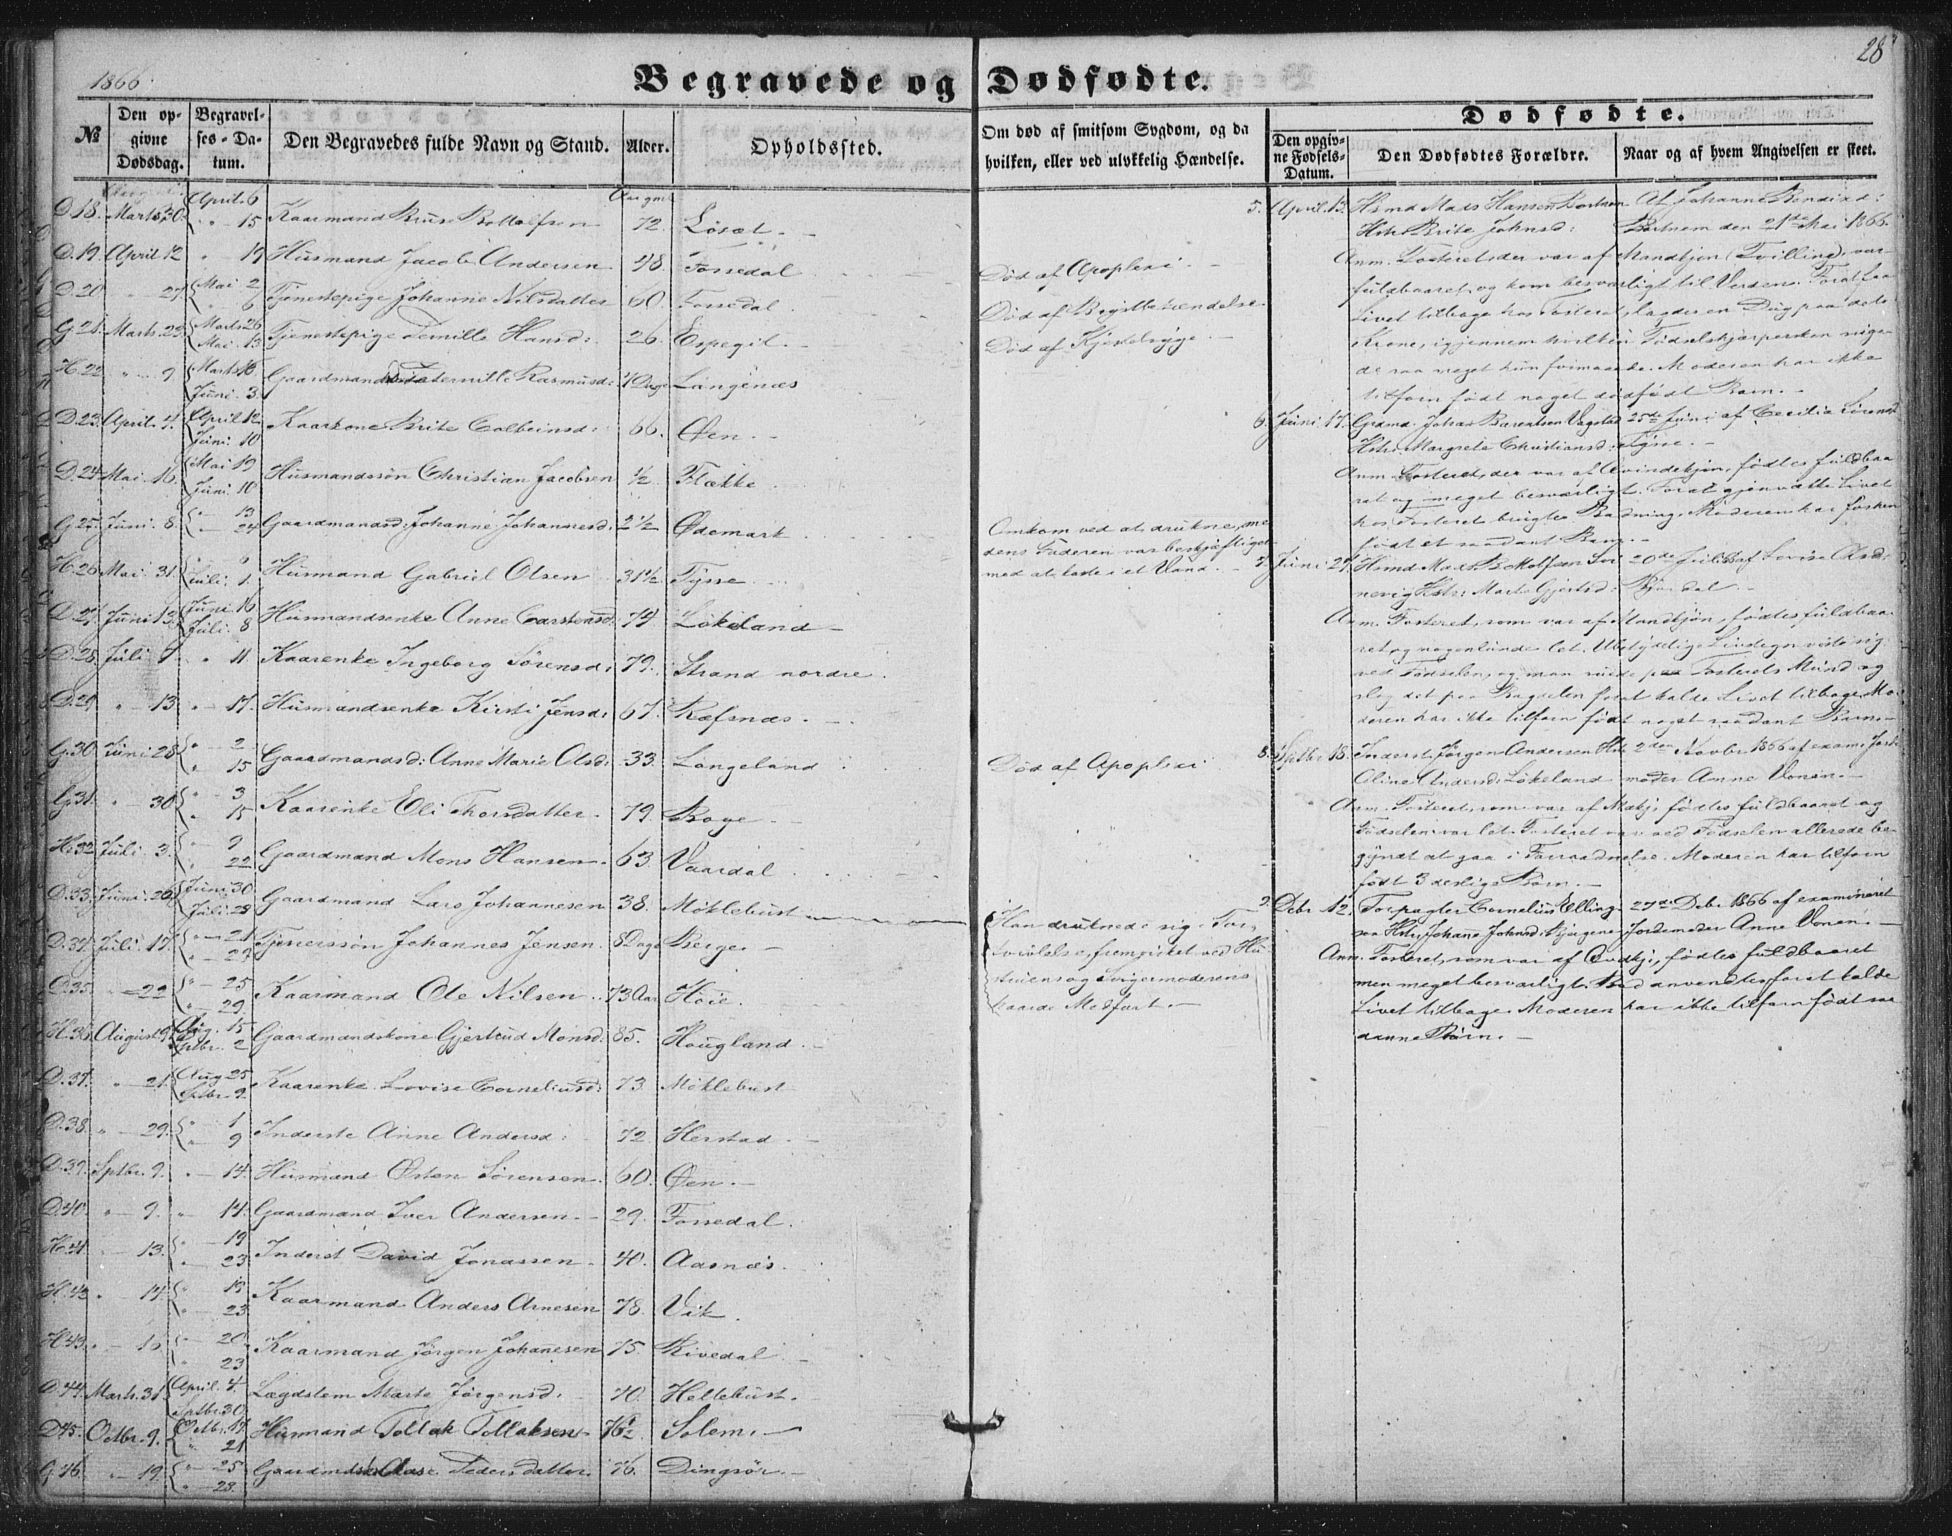 1866.
28
Begravede og Dødfødte.
№
Den opgivne Dødsdag.
Begravelses-Datum.
Den Begravedes fulde Navn og Stand.
Alder.
Opholdssted.
Om død af smitsom Sygdom, og da hvilken, eller ved ulykkelig Hændelse.
Dødfødte.
Den opgivne Fødsels-Datum.
Den Dødfødtes Forældre.
Naar og af hvem Angivelsen er skeet.
D.18. Marts 20. April 6 " 15 Kaarmand 72. Løset.
D.19. April 12 " 19 Husmand Jacob Andersen 48. Fossedal Død af Apoplexi.
D.20 " 27. Mai 2 " 6 Tjenestepige Johanne Nilsdatter 60. Fossedal. Død af Brystbetændelse
G.21. Marts. 23. Marts 26 Mai. 13 Tjenestepige Pernille Hansd: 26. Espegil. Død af
H.22 " 9 Marts 18 Juni. 3. Gaardmands Pernille Rasmusd: 4 Dage Langenæs
D.23. April. 4. April 12 Juni. 10 Kaarkone Brite Colbeinsd: 66. Øen.
D.24. Mai. 16. Mai 19 Juni. 10 Husmandssøn Christian Jacobsen 1/2. Flække
G.25. Juni. 8. " 13 " 24 Gaardmandsd: Johanne Johannesd. 2 1/2 Ødemark Omkom ved at drukne, me-
dens Faderen var beskjæftiget
med at lade i et Vand.
H.26. Mai 31. Juli. 1. Husmand Gabriel Olsen 31 1/2. Tysse
D.27. Juni 13. Juni. 16 Juli. 8 Husmandsenke Anne Carstensd. 74 Løkeland
D.28. Juli " 11 Kaarenke Ingeborg Sørensd: 79. Strand nordre.
D.29 " 13. " 17. Husmandsenke Kirsti Jensd: 67. Ræfsnæs.
G.30. Juni 28 " 2 " 15 Gaardmandsd: Anne Marie Olsd: 33. Langeland Død af Apoplexi
G.31. " 30. " 3 " 15 Kaarenke Eli Thorsdatter. 79. Boge
H.32 Juli. 3. " 9 " 22 Gaardmand Mons Hansen. 63. Vaardal
D.33. Juni. 26. Juni 30 Juli. 28 Gaardmand Lars Johannesen 38. Møklebust Han druknede sig i For-
tvivlelse, fremvirket ved Hu-
struens og Svigermoderens
haarde Medfart.
D.34. Juli. 17. " 21 " 29. Tjenerssøn Johannes Jensen. 8 Dage Berge.
D.35. " 22 " 25 " 29. Kaarmand Ole Nilsen 73 Aar Høie.
H.36. August 9. Aug. 15 Sptbr. 2 Gaardmandskone Gjertrud Monsd. 85. Hougland.
D.37. " 21. Aug 25 Sptbr. 9. Kaarenke Lovise Corneliusd: 73. Møklebust
D.38. " 29. " 1 " 9 Inderste Anne Andersd: 72 Herstad.
D.39. Sptbr. 9. " 14. Husmand Østen Sørensen. 60. Øen.
D.40. " 9. " 14. Gaardmand Iver Andersen. 29. Fossedal.
H.41. " 13. " 19 " 23. Inderst David Jonassen. 40. Aasnæs.
H.42 " 14. " 19 " 23. Kaarmand Anders Arnesen 78. Vik.
H.43. " 16 " 20. " 23 Kaarmand Jørgen Johanesen 75. Rivedal.
D.44. Marts. 31. April. 4. Sptbr. 30 Lægdslem Marte Jørgensd: 70. Hellebust.
D.45. Octbr. 9. Octbr. 14 " 21 Husmand Tollak Tollaksen 76 1/2 Solem.
G.46. " 19. " 25 " 28. Aase Pedersdatter. 76. Dingsør.
5. April 13. Hsmd Mads Hansen
Hstr Brite Johnsd: den 21de Mai 1866.
Anm. Fosteret, der var af Mandkjøn (Tvilling), var
fuldbaaret, og kom besværligt til Verden. For at faa
Livet tilbage hos Fosteret, lagdes en Dug paa dets
Krone, igjennem hvilken Fødselshjælpersken
de saa meget hun formaaede. Moderen har ikke
tilforn født noget dødfødt Barn.
6. Juni. 17. Grdmd. Johan Barentsen 25de Juni af Cecilia
Hstr. Margrete Christiansd: Tysse.
Anm. Fosteret, der var af Qvindekjøn, fødtes fuldbaa-
ret og meget besværligt. For at gjenvække Livet
hos Fosteret brugtes Badning. Moderen har forhen
født et saadant Barn.
7. Juni 27. Hsmd 20de Juli af Lovise
Hstr: Marte Gjertsd:
Anm. Fosteret, som var af Mandkjøn, fødtes fuldbaa-
ret og nogenlunde let. Ubetydelige Livstegn viste sig
ved Fødselen, og man paa Fosterets Mund og
slog det paa Bagdelen for at kalde Livet tilbage. Mo-
deren har ikke tilforn født noget saadant Barn.
8. Sptbr 18. Inderst Jørgen Andersen Hstr 2den Novbr 1866 af exam. Jorde-
Oline Andersd: Løkeland moder Anne Vonen.
Anm. Fosteret, som var af Mskj. fødtes fuldbaaret og
Fødselen var let. Fosteret var ved Fødselen allerede be-
gyndt at gaa i Forraadnelse. Moderen har tilforn
født 3 deslige Børn.
9. Debr 12. Forpagter Cornelius Elling- 27de Deb. 1866 af examineret
sen Hstr. Johane Johnsd: Jordemoder Anne Vonen.
Anm. Fosteret, som var af Qvdkj., fødtes fuldbaaret
men meget besværligt. Bad anvendtes for at kalde
Livet tilbage. Moderen har ikke tilforn født saa-
danne Børn.